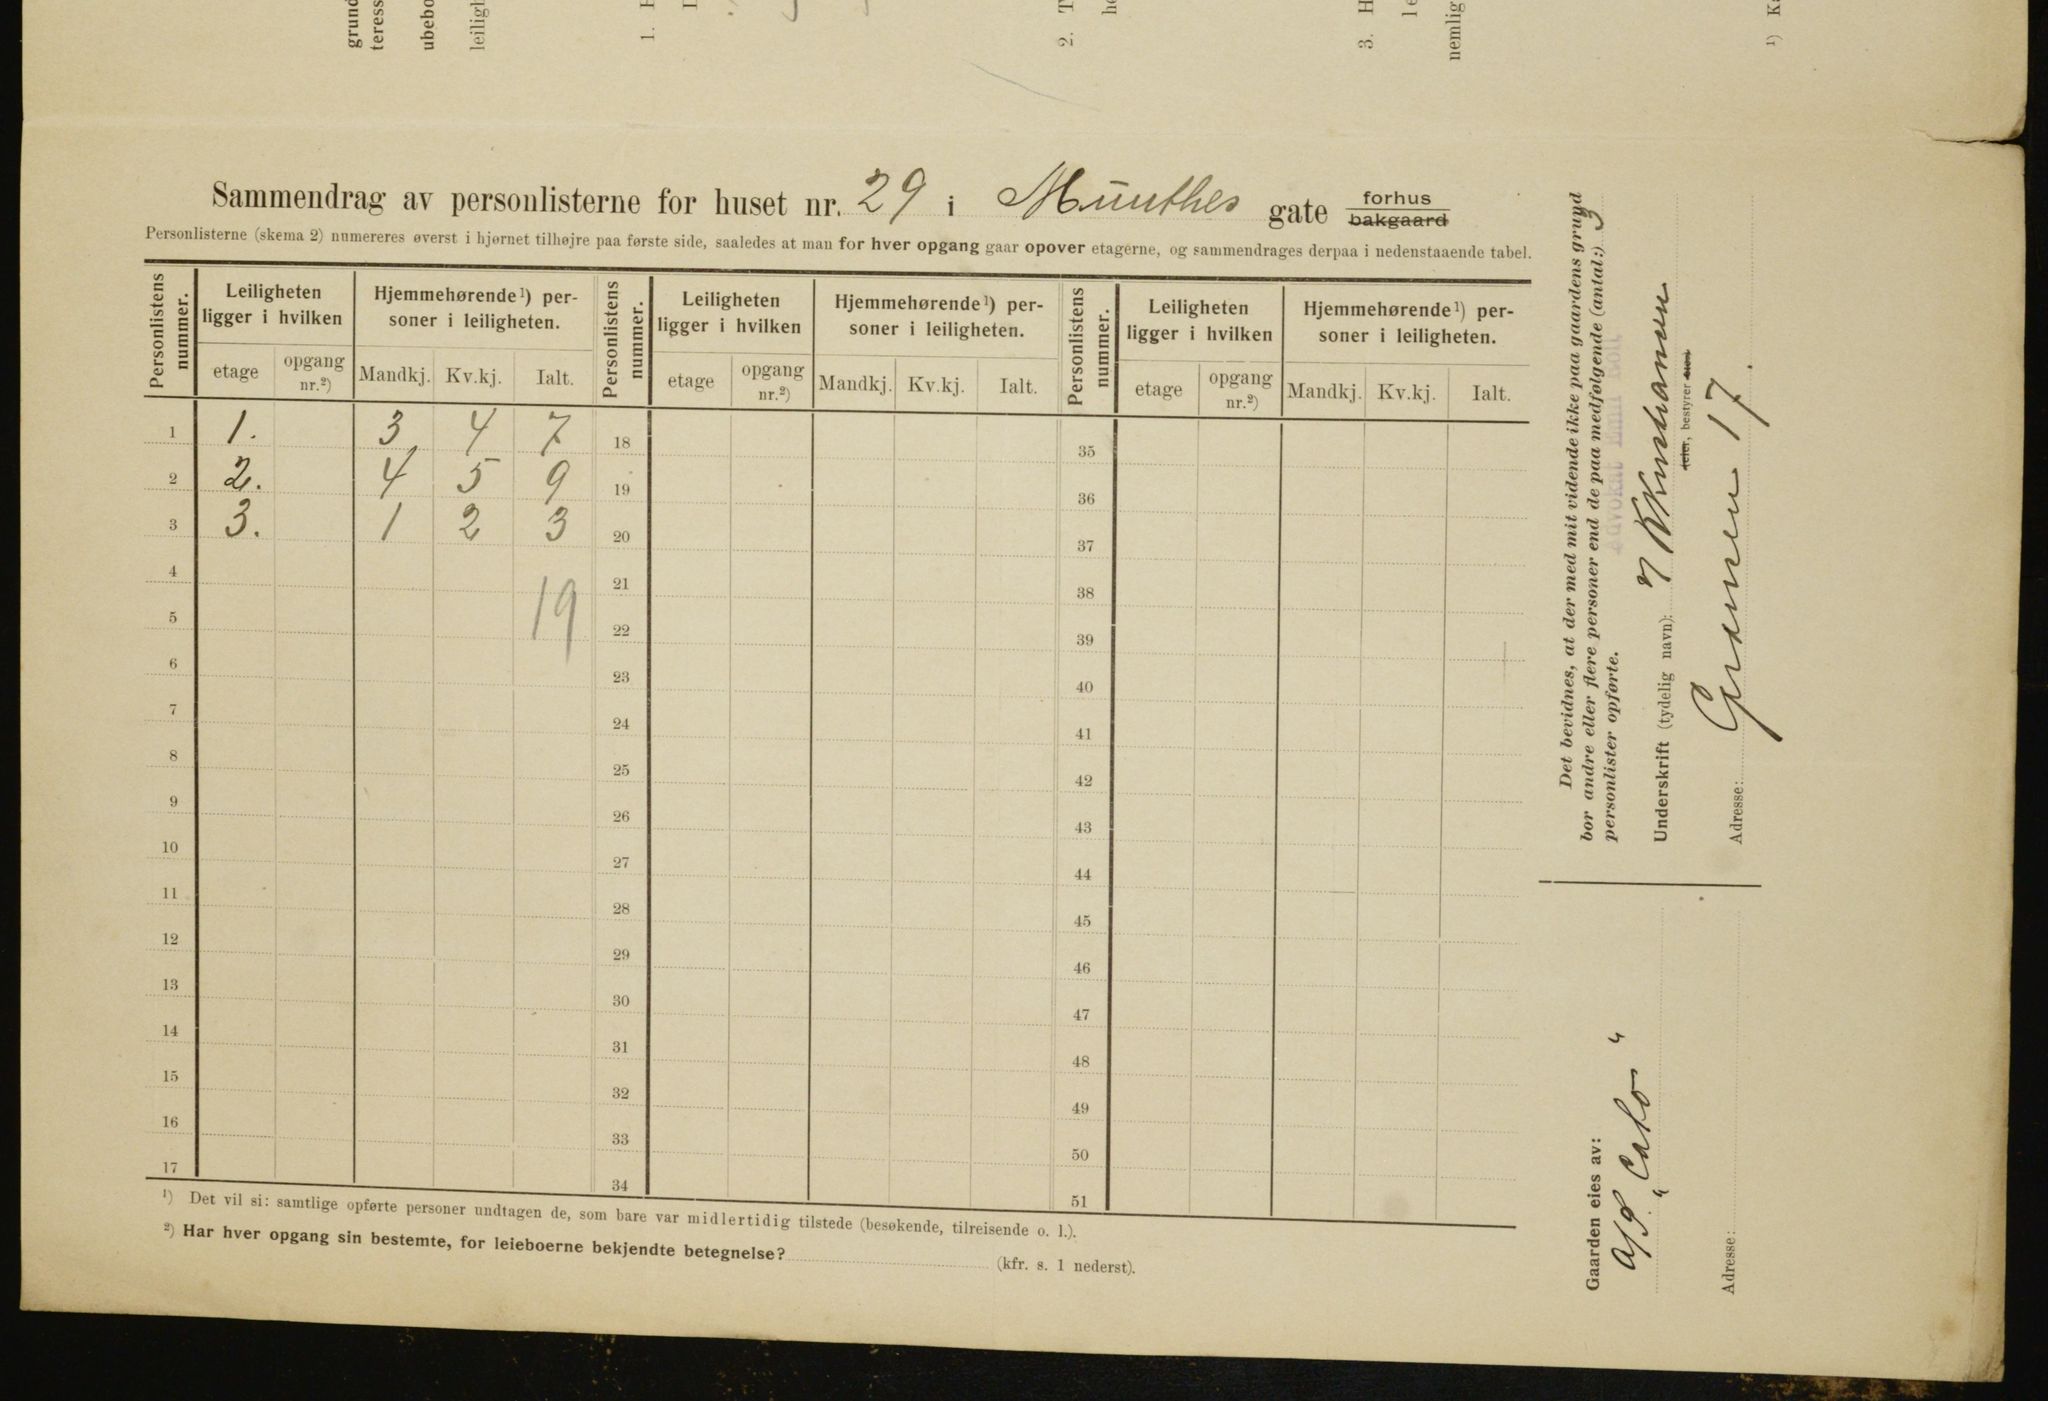 grund
teress
ubebo
leiligh
1.
2. T
3. H
nemlig
¹) K
Sammendrag av personlisterne for huset nr. 29 i Munthes gate forhus
bakgaard
Personlisterne (skema 2) numereres øverst i hjørnet tilhøjre paa første side, saaledes at man for hver opgang gaar opover etagerne, og sammendrages derpaa i nedenstaaende tabel.
Personlistens nummer. Leiligheten ligger i hvilken Hjemmehørende¹) personer i leiligheten. Personlistens nummer. Leiligheten ligger i hvilken Hjemmehørende¹) personer i leiligheten. Personlistens nummer. Leiligheten ligger i hvilken Hjemmehørende¹) personer i leiligheten.
etage opgang nr.²) Mandkj. Kv.kj. Ialt. etage opgang nr.²) Mandkj. Kv.kj. Ialt. etage opgang nr.²) Mandkj. Kv.kj. Ialt.
1 1. 3 4 7 18 35
2 2. 4 5 9 19 36
3 3. 1 2 3 20 37
4 21 38
19
5 22 39
6 23 40
7 24 41
8 25 42
9 26 43
10 27 44
11 28 45
12 29 46
13 30 47
14 31 48
15 32 49
16 33 50
17 34 51
¹) Det vil si: samtlige opførte personer undtagen de, som bare var midlertidig tilstede (besøkende, tilreisende o. l.).
²) Har hver opgang sin bestemte, for leieboerne bekjendte betegnelse? (kfr. s. 1 nederst).
Det bevidnes, at der med mit vidende ikke paa gaardens grund
bor andre eller flere personer end de paa medfølgende (antal:) 3
personlister opførte.
Underskrift (tydelig navn):
eier, bestyrer
Adresse: Grænsen 17.
Gaarden eies av:
A/S "Cato"
Adresse: